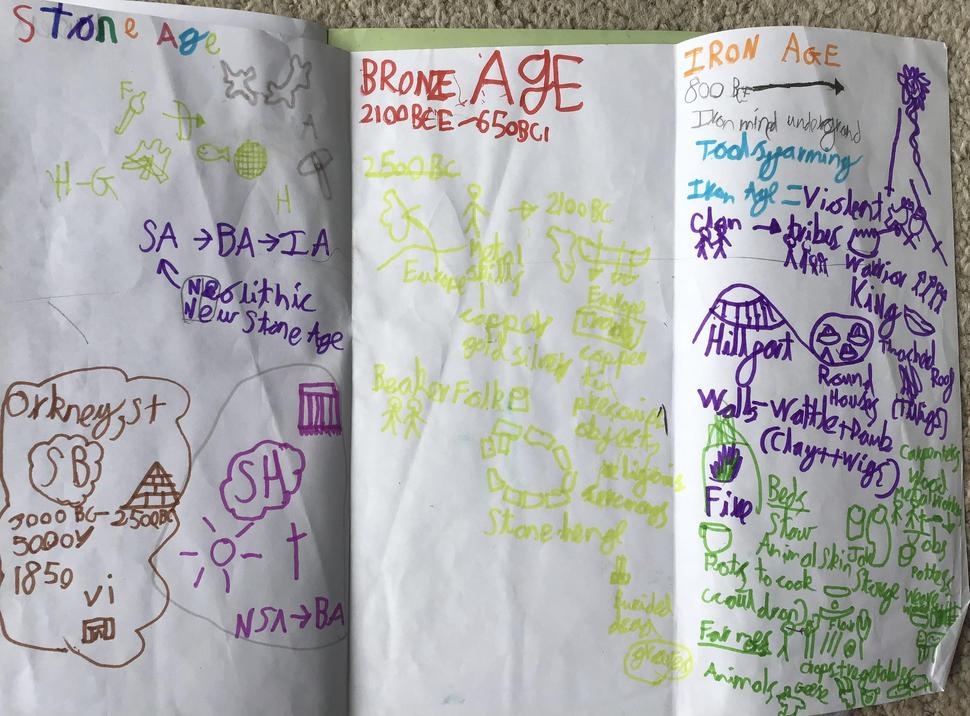 Stone Age
F
A
H-G
H
SA → BA → IA
Neolithic
New Stone Age
Orkney, st
SB
3000 BC- 2500BC
5000Y
1850
vi
SH
NSA → BA
BRONZE AGE
2100BCE - 650BC
2500BC
→ 2100BC
Metal
Europe skills
copper
gold silver
Beaker Folk
Europe
Trade
copper
tin
objects
religious
Stone henge
buried
dead
graves
IRON AGE
800 BE
Iron mind underground
Tools, farming
Iron Age = Violent
Clan → tribes
Warrior
King
Hillfort
Round
Houses
Thached
Roof
(twigs)
Walls-Wattle+Daub
(Clay++wigs)
Fire
Beds
Straw
Animal Skin
Pots to cook
Storage
(cauldron)
Farmes
crops+vegetables
Animals
Jobs
Carpenters
wood
Potters
weave